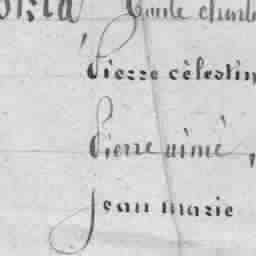 Emile
Pierre cèlestin
Pierre aimé,
jean marie